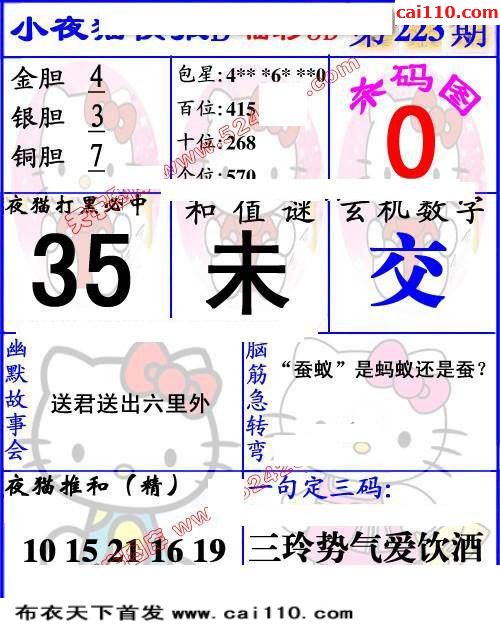 cai110.com
小夜猫
第 223 期
金胆 4
银胆 3
铜胆 7
包星: 4** *6* **0
百位: 415
十位: 268
个位: 570
米码图
0
夜猫打黑必中
35
和值谜
未
玄机数字
交
幽默故事会
送君送出六里外
脑筋急转弯
“蚕蚁”是蚂蚁还是蚕?
夜猫推和(精)
10 15 21 16 19
一句定三码:
三玲势气爱饮酒
布衣天下首发 www.cai110.com